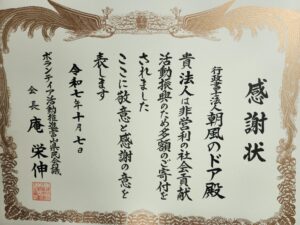 感謝状
行政書士法人朝風のドア殿
貴法人は非営利の社会貢献
活動振興のため多額のご寄付を
されました
ここに敬意と感謝の意を
表します
令和七年十月七日
ボランティア活動推進富山県民会議
会長 庵 栄伸